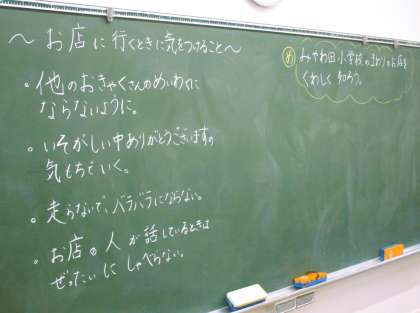 ～お店に行くときに気をつけること～
。他のおきゃくさんのめいわくに
ならないように。
。いそがしい中ありがとうございますの
気もちでいく。
。走らないで、バラバラにならない。
。お店の人が話しているときは
ぜったいにしゃべらない。
め みやわ田小学校のまわりのお店を
くわしく知ろう。